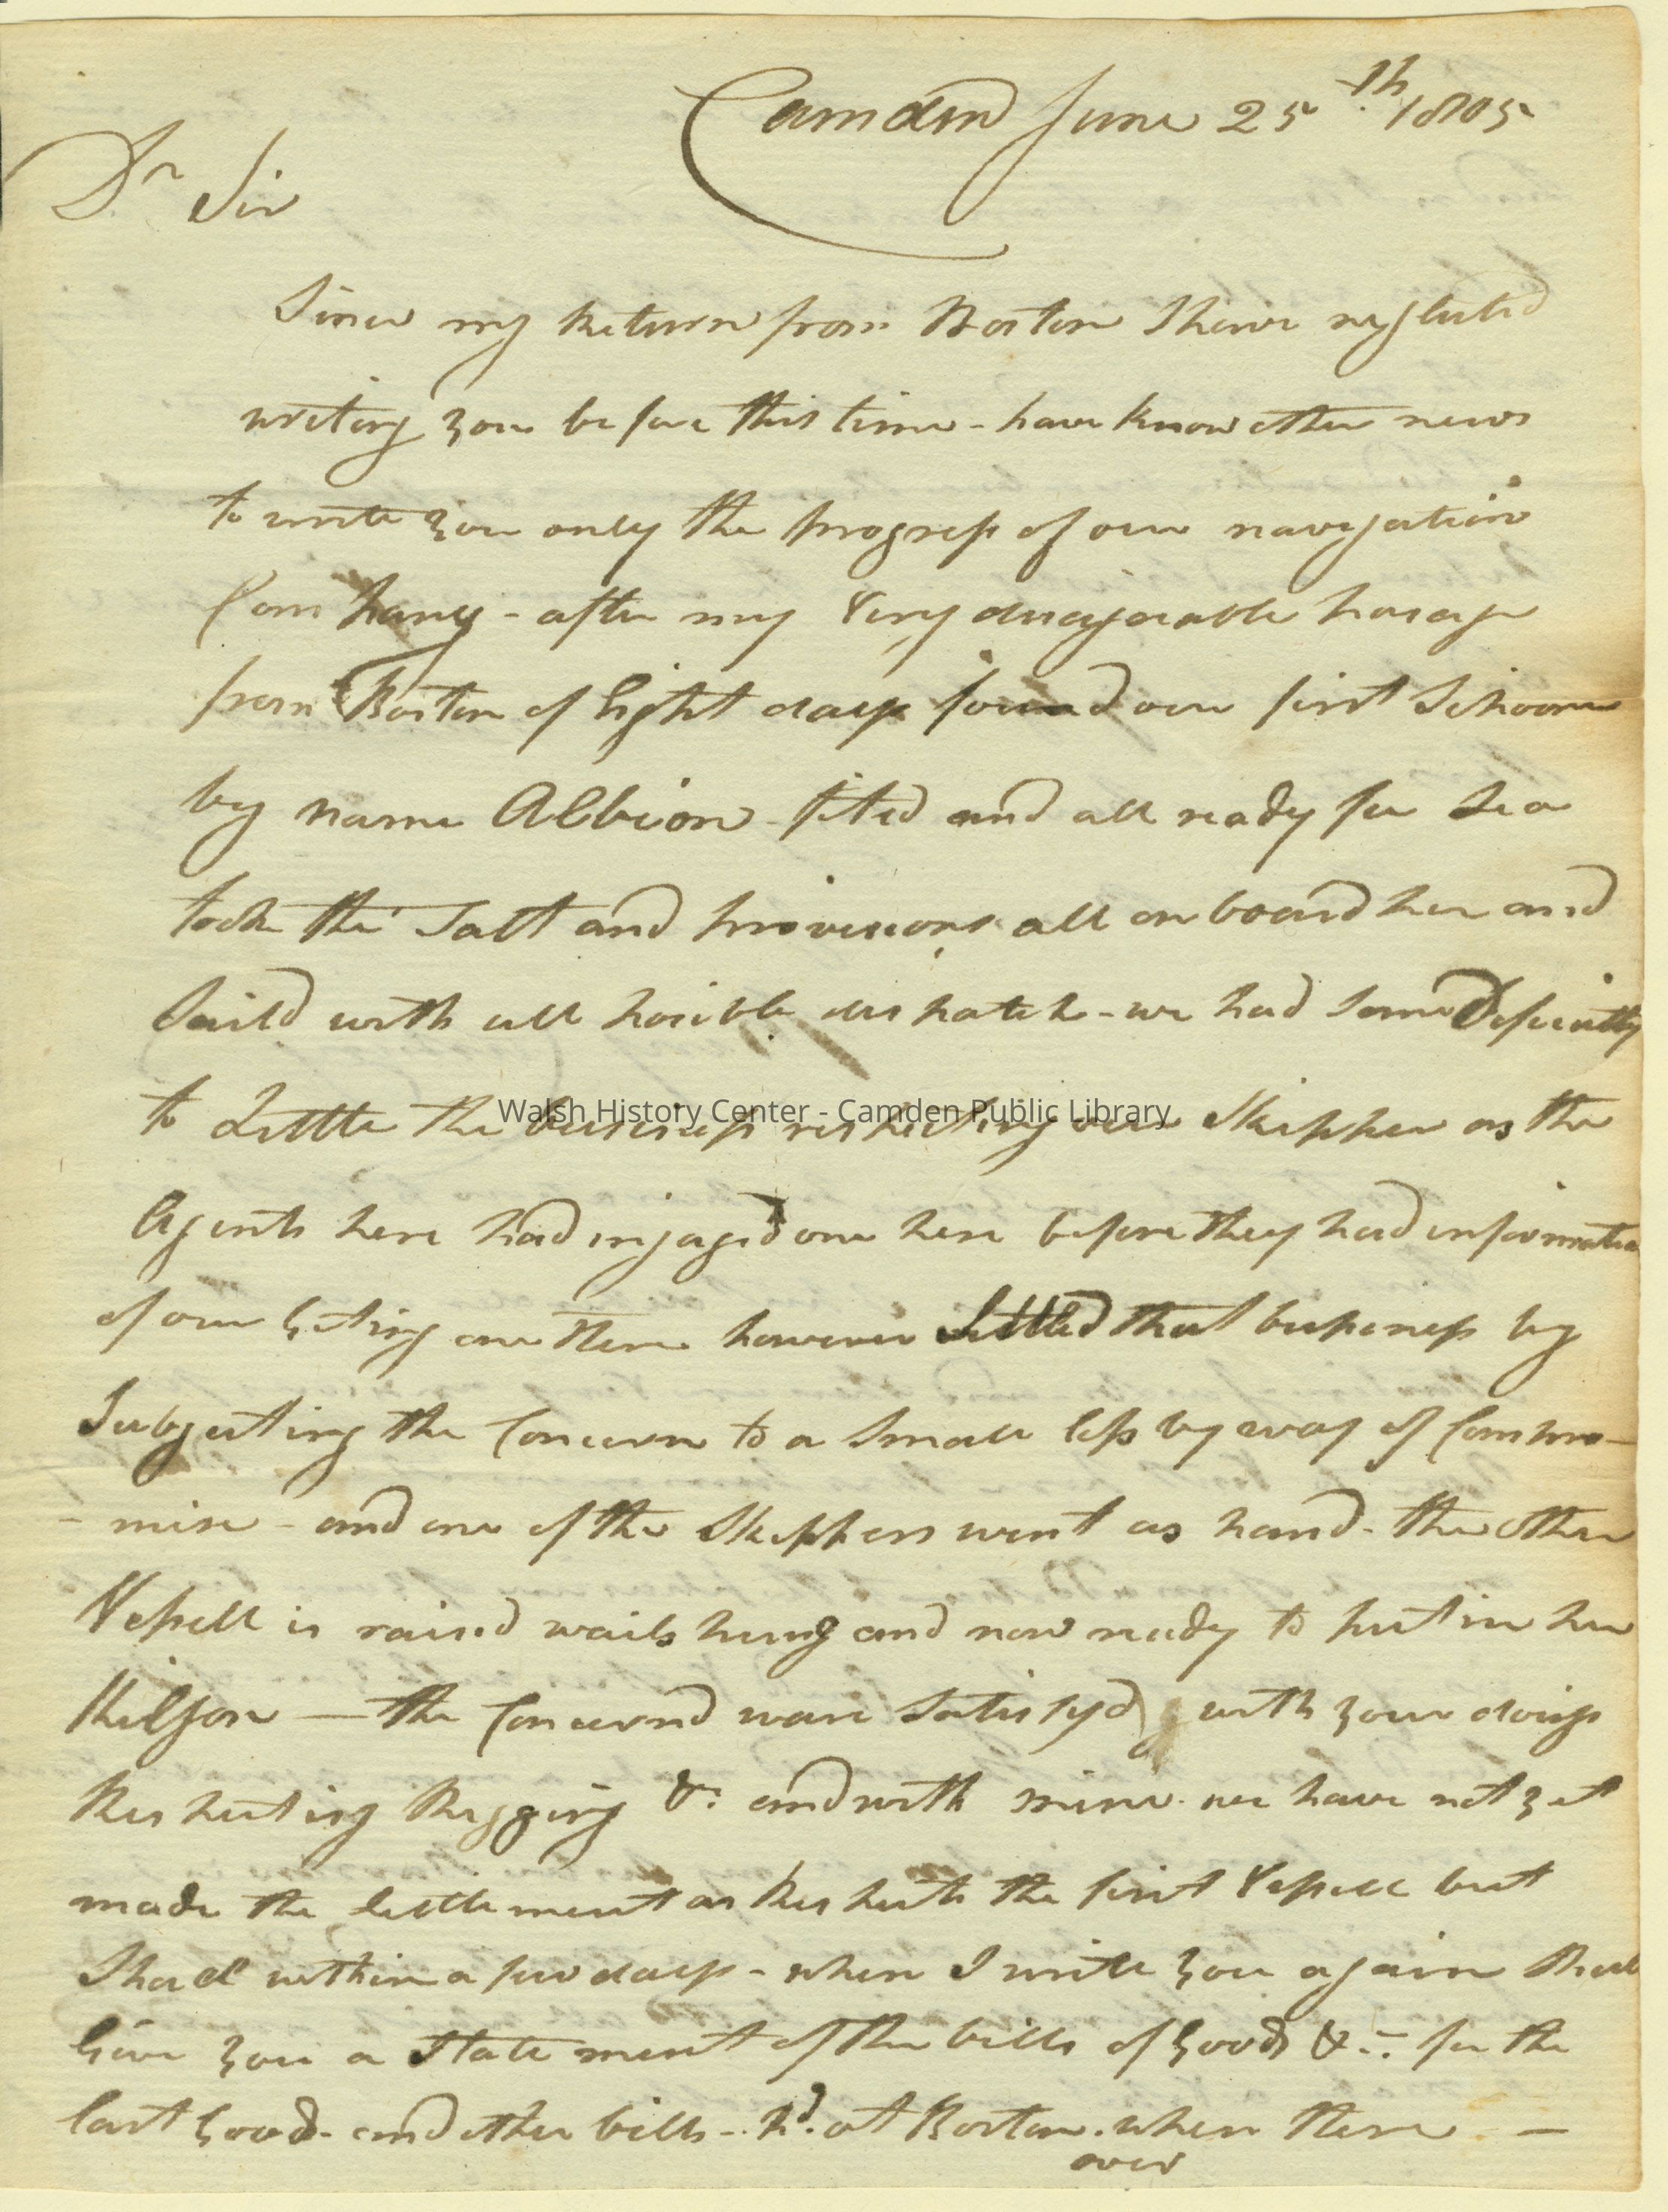 Camden June 25th. 1805
Dr Sir
Since my Return from Boston I have neglected
writing you before this time - have know other news
to write you only the progress of our navigation
Company - after my Very disagreable passage
from Boston of Eight days found our first Schooner
by name Albion - fited and all ready for Sea
took the Salt and provisions all on board her and
Saild with all posible dispatch - we had some
to Settle the business respecting our Skipper as the
Agents here had ingaged one here before they had information
of our geting one there however Settled that business by
Subjecting the Concern to a Small loss by way of Compro-
- mise - and one of the Skippers went as hand - the other
Vessell is raised wails hung and now ready to put in her
Kilson — the Concernd ware satisfyd with your doings
Respecting Rigging &c and with mine - we have not yet
made the Settlement as Respects the first Vessell but
Shall within a few days - when I write you again Shall
Give you a Statement of the bills of Goods &c for the
last Goods - and other bills - pd. at Boston. when there —
over
Walsh History Center - Camden Public Library